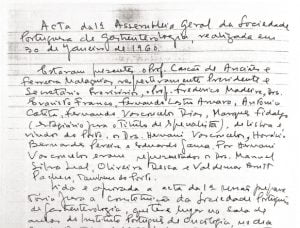 Acta da 1ª Assembleia Geral da Sociedade
Portuguesa de Gastrenterologia, realizada em
30 de Janeiro de 1960.
Estavam presentes, o Prof. Cascão de Anciães e
Ferreira Malaquias, respectivamente Presidente e
Secretário Provisório, o prof. Frederico Madeira, Drs.
Evaristo Franco, Fernando Costa Amaro, António
Fernando Vasconcelos Dias, Marques Fidalgo
para o Título de
vindos do Porto, o Dr. Hernani Vasconcelos,
Bernardo Pereira e Eduardo Gama. Por Hernani
Vasconcelos eram representados o Dr. Manuel
Silva Leal, Oliveira e Valdemar
também do Porto.
Lida e aprovada a acta da 1ª
tória para a Constituição da Sociedade Portuguesa
de Gastrenterologia que teve lugar na Sala de
aulas do Instituto Português de Oncologia, no dia